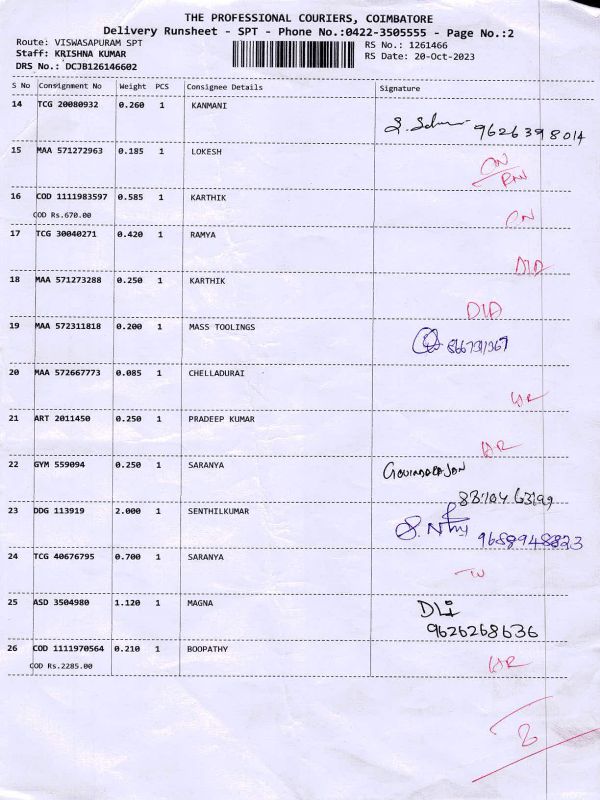 THE PROFESSIONAL COURIERS, COIMBATORE
Delivery Runsheet - SPT - Phone No.:0422-3505555 - Page No.:2
Route: VISWASAPURAM SPT
RS No.: 1261466
Staff: KRISHNA KUMAR
RS Date: 20-Oct-2023
DRS No.: DCJB126146602
S No Consignment No Weight PCS Consignee Details Signature
14 TCG 20080932 0.260 1 KANMANI
9626398014
15 MAA 571272963 0.185 1 LOKESH
16 COD 1111983597 0.585 1 KARTHIK
COD Rs.670.00
17 TCG 30040271 0.420 1 RAMYA
DID
18 MAA 571273288 0.250 1 KARTHIK
DID
19 MAA 572311818 0.200 1 MASS TOOLINGS
20 MAA 572667773 0.085 1 CHELLADURAI
21 ART 2011450 0.250 1 PRADEEP KUMAR
22 GYM 559094 0.250 1 SARANYA
GOVINDARAJAN
23 DDG 113919 2.000 1 SENTHILKUMAR
9689948823
24 TCG 40676795 0.700 1 SARANYA
25 ASD 3504980 1.120 1 MAGNA
9626268636
26 COD 1111970564 0.210 1 BOOPATHY
COD Rs.2285.00